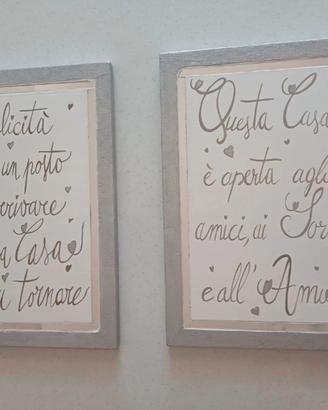 licità
un posto
rrivare
a Casa
i tornare
Questa Casa
è aperta agli
amici, ai Sor
e all'Amo